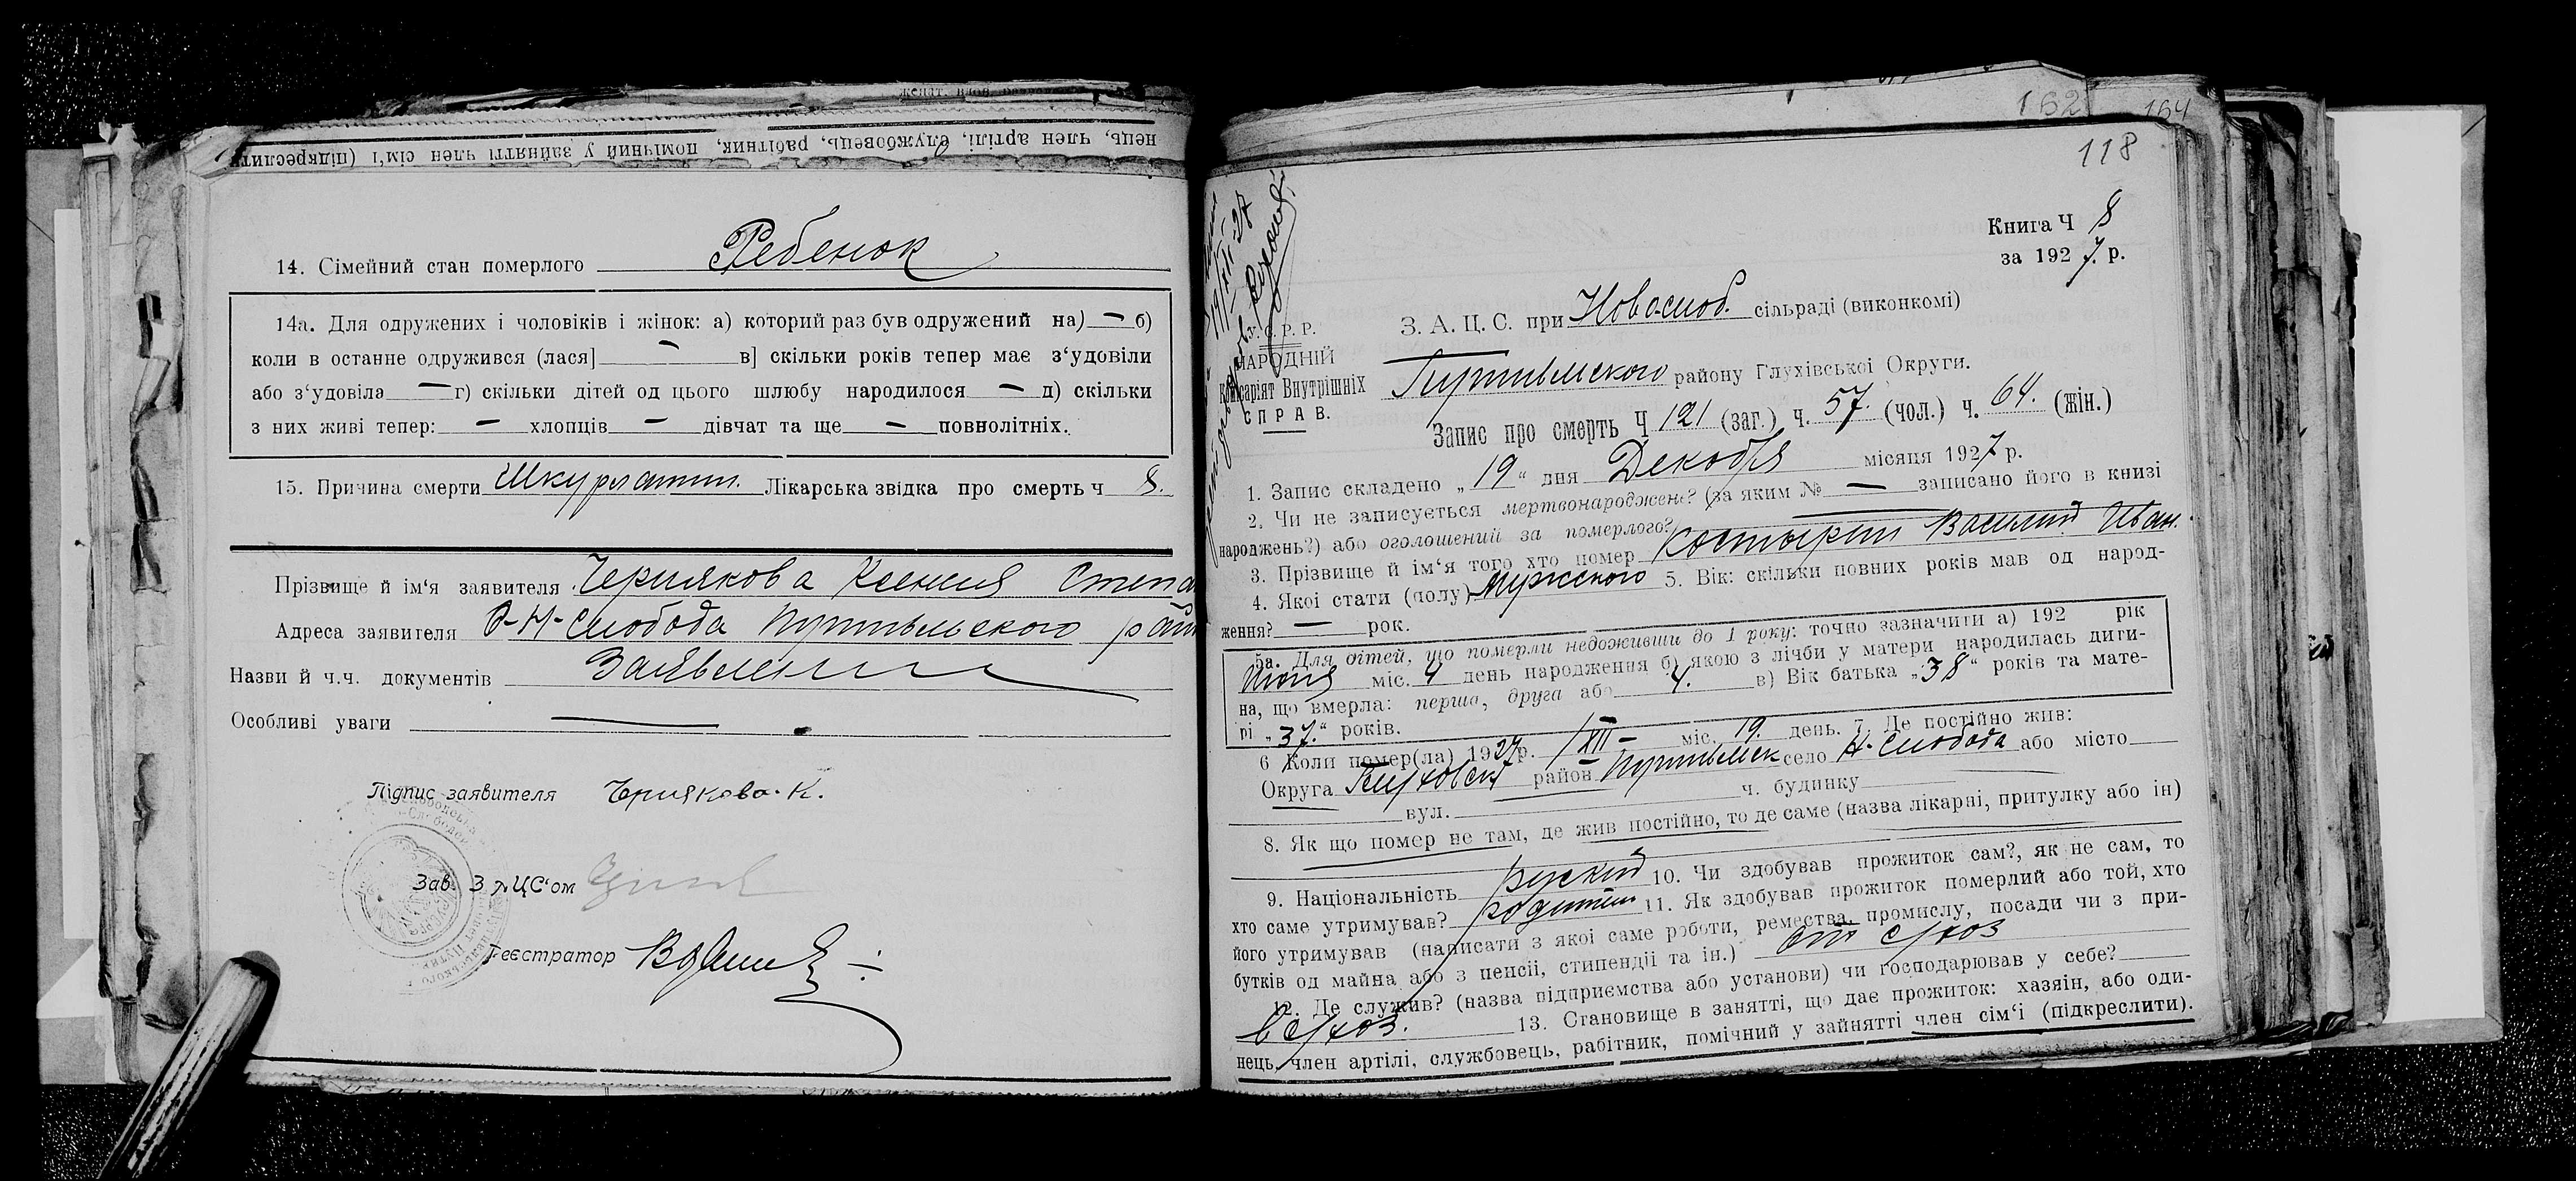 нець, член артілі, службовець, рабітник, помічний у зайнятті член сім'ї (підкреслити)
14. Сімейний стан померлого Ребенок
14а. Для одружених і чоловіків і жінок: а) которий раз був одружений на) — б)
коли в останнє одружився (лася] — в] скільки років тепер має з'удовіли
або з'удовіла — г) скільки дітей од цього шлюбу народилося — д) скільки
з них живі тепер: — хлопців — дівчат та ще — повнолітніх.
15. Причина смерти Лікарська звідка про смерть ч 8.
Прізвище й ім'я заявителя Чернякова Ксения Степа
Адреса заявителя Н-Слобода Путивльского рай
Назви й ч.ч. документів Заявлени
Особливі уваги —
Підпис заявителя Чернякова. К.
Зав. ЗАЦС'ом
Реєстратор
162 164
118
Книга Ч 8
за 1927. р.
У. С. Р. Р.
НАРОДНІЙ
Комісаріят Внутрішніх
СПРАВ.
З. А. Ц. С. при Новослоб. сільраді (виконкомі)
Путивльского району Глухівської Округи.
Запис про смерть Ч 121 (заг.) ч. 57. (чол.) ч. 64. (жін.)
1. Запис складено „19" дня Декабря місяця 1927 р.
2. Чи не записується мертвонароджен? (за яким № — записано його в книзі
народжень?) або оголошений за померлого?
3. Прізвище й ім'я того хто помер Костыркин Василий Иван.
4. Якої стати (полу) Мужского 5. Вік: скільки повних років мав од народ-
ження? — рок.
5а. Для дітей, що померли недоживши до 1 року: точно зазначити а) 192 рік
Июня міс. 4 день народження б) якою з лічби у матери народилась дити-
на, що вмерла: перша, друга або 4. в) Вік батька „38" років та мате-
рі „37." років.
6 Коли помер(ла) 1927р. XII — міс. 19. день. 7. Де постійно жив:
Округа Глуховск район Путивльск село Н-Слобода або місто
вул. ч. будинку
8. Як що помер не там, де жив постійно, то де саме (назва лікарні, притулку або ін)
9. Національність руский 10. Чи здобував прожиток сам?, як не сам, то
хто саме утримував? родители 11. Як здобував прожиток померлий або той, хто
його утримував (написати з якої саме роботи, ремества, промислу, посади чи з при-
бутків од майна або з пенсії, стипендії та ін.) от с/хоз
12. Де служив? (назва підприємства або установи) чи господарював у себе?
в с/хоз. 13. Становище в занятті, що дає прожиток: хазяїн, або оди-
нець, член артілі, службовець, рабітник, помічний у зайнятті член сім'ї (підкреслити).